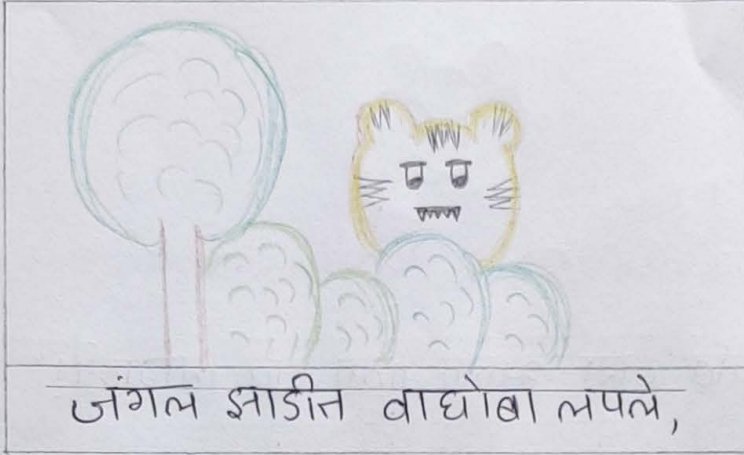 जंगल झाडीत वाघोबा लपले,